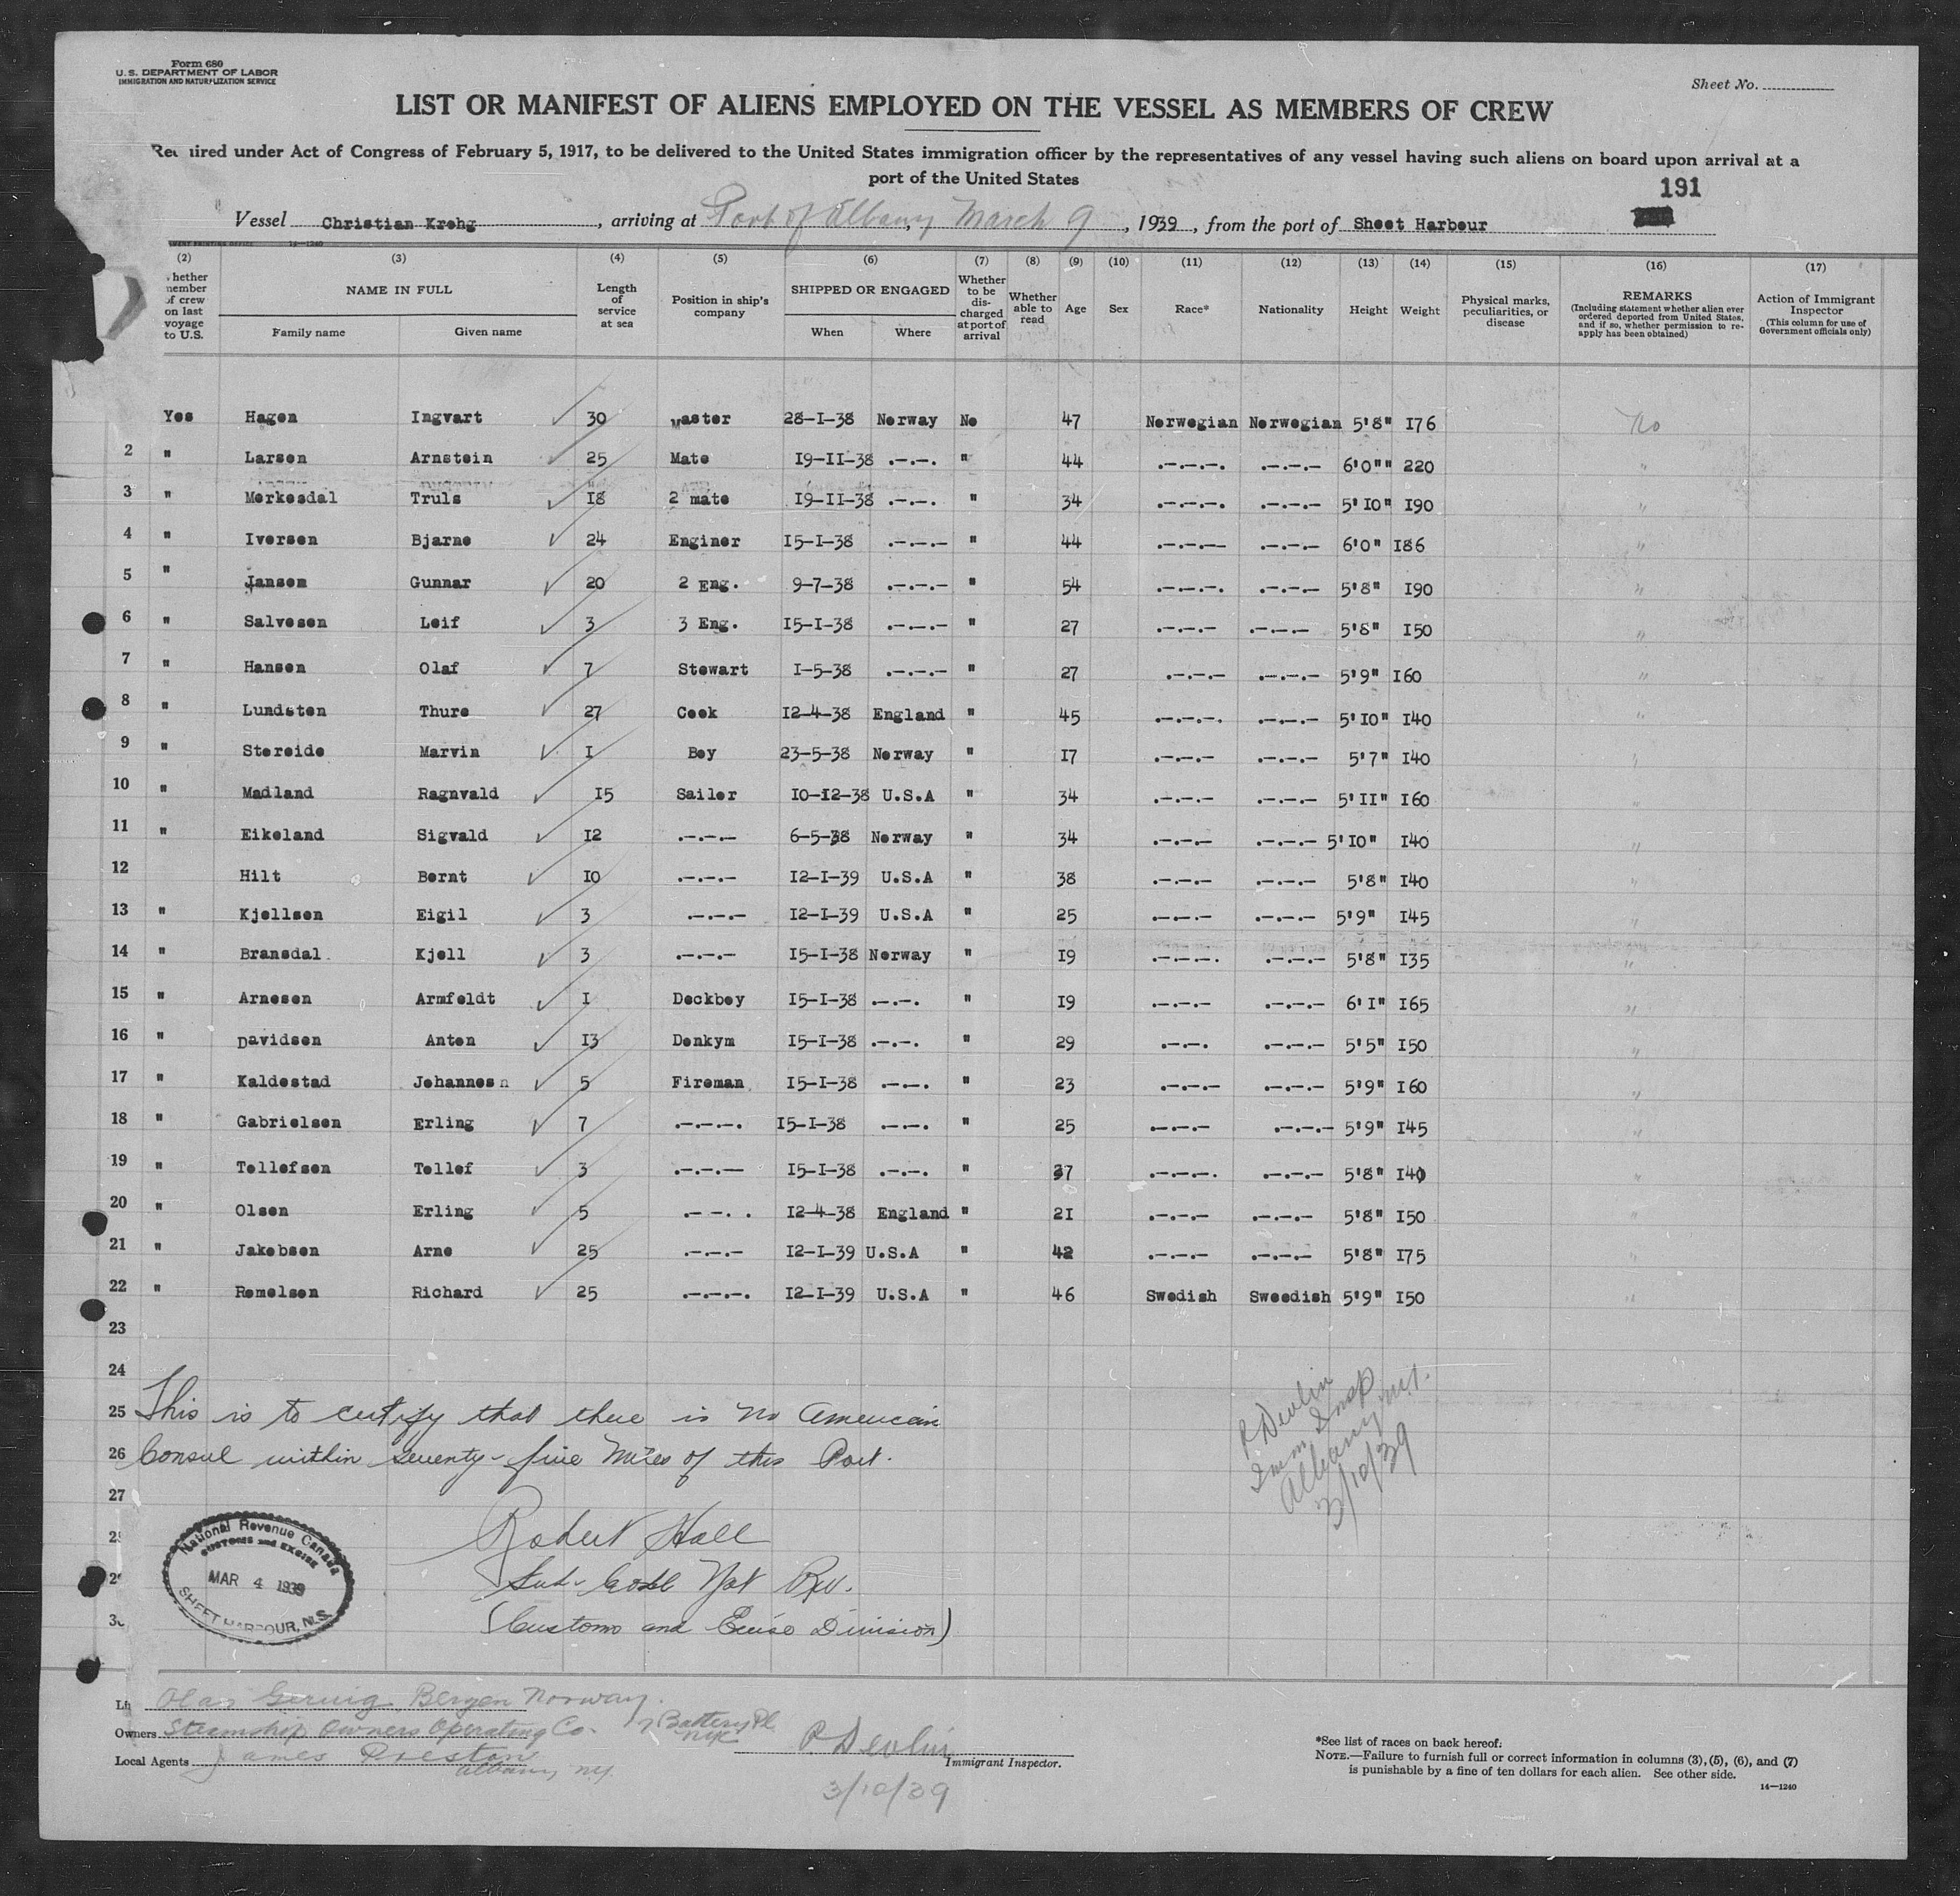 Form 680
U. S. DEPARTMENT OF LABOR
IMMIGRATION AND NATURALIZATION SERVICE
Sheet No.
LIST OR MANIFEST OF ALIENS EMPLOYED ON THE VESSEL AS MEMBERS OF CREW
Required under Act of Congress of February 5, 1917, to be delivered to the United States immigration officer by the representatives of any vessel having such aliens on board upon arrival at a
port of the United States
191
Vessel Christian Krohg, arriving at Port of Albany, March 9, 1939, from the port of Sheet Harbour
(2) (3) (4) (5) (6) (7) (8) (9) (10) (11) (12) (13) (14) (15) (16) (17)
hether member of crew on last voyage to U.S. NAME IN FULL Family name Given name Length of service at sea Position in ship's company SHIPPED OR ENGAGED When Where Whether to be discharged at port of arrival Whether able to read Age Sex Race* Nationality Height Weight Physical marks, peculiarities, or disease REMARKS (Including statement whether alien ever ordered deported from United States, and if so, whether permission to re-apply has been obtained) Action of Immigrant Inspector (This column for use of Government officials only)
Yes Hagen Ingvart ✓ 30 Master 28-I-38 Norway No 47 Norwegian Norwegian 5'8" I76 No
2 " Larsen Arnstein ✓ 25 Mate I9-II-38 .-.-. " 44 .-.-.-. .-.-.- 6'0"" 220 "
3 " Merkesdal Truls ✓ I8 2 mate I9-II-38 .-.-. " 34 .-.-.-. .-.-.- 5'I0" I90 "
4 " Iversen Bjarne ✓ 24 Enginer I5-I-38 .-.-.- " 44 .-.-.- .-.-.- 6'0" I86 "
5 " Jansen Gunnar ✓ 20 2 Eng. 9-7-38 .-.-.- " 54 .-.-.-. .-.-.- 5'8" I90 "
6 " Salvesen Leif ✓ 3 3 Eng. I5-I-38 .-.-.- " 27 .-.-.- .-.-.- 5'8" I50 "
7 " Hansen Olaf ✓ 7 Stewart I-5-38 .-.-.- " 27 .-.-.- .-.-.- 5'9" I60 "
8 " Lundsten Thure ✓ 27 Cook I2-4-38 England " 45 .-.-.-. .-.-.- 5'I0" I40 "
9 " Stereide Marvin ✓ I Boy 23-5-38 Norway " I7 .-.-.- .-.-.- 5'7" I40 "
10 " Madland Ragnvald ✓ I5 Sailor I0-I2-38 U.S.A " 34 .-.-.- .-.-.- 5'II" I60 "
11 " Eikeland Sigvald ✓ I2 .-.-.- 6-5-38 Norway " 34 .-.-.- .-.-.- 5'I0" I40 "
12 Hilt Bernt ✓ I0 .-.-.- I2-I-39 U.S.A " 38 .-.-.- .-.-.- 5'8" I40 "
13 " Kjellsen Eigil ✓ 3 .-.-.- I2-I-39 U.S.A " 25 .-.-.- .-.-.- 5'9" I45 "
14 " Bransdal Kjell ✓ 3 .-.-.- I5-I-38 Norway " I9 .-.-.-. .-.-.- 5'8" I35 "
15 " Arnesen Armfeldt ✓ I Deckboy I5-I-38 .-.-. " I9 .-.-.- .-.-.- 6'I" I65 "
16 " Davidsen Anton ✓ I3 Donkym I5-I-38 .-.-. " 29 .-.-. .-.-.- 5'5" I50 "
17 " Kaldestad Johannes ✓ 5 Fireman I5-I-38 .-.-. " 23 .-.-.- .-.-.- 5'9" I60 "
18 " Gabrielsen Erling ✓ 7 .-.-.-. I5-I-38 .-.-. " 25 .-.-.- .-.-.- 5'9" I45 "
19 " Tollefsen Tollef ✓ 3 .-.-.- I5-I-38 .-.-. " 37 .-.-.-. .-.-.- 5'8" I40 "
20 " Olsen Erling ✓ 5 .-.-. . I2-4-38 England " 2I .-.-.- .-.-.- 5'8" I50 "
21 " Jakobsen Arne ✓ 25 .-.-.- I2-I-39 U.S.A " 42 .-.-.- .-.-.- 5'8" I75 "
22 " Romelsen Richard ✓ 25 .-.-.-. I2-I-39 U.S.A " 46 Swedish Sweedish 5'9" I50 "
23
24
25 This is to certify that there is no American
26 Consul within Seventy-five Miles of this Port.
27
Robert Hall
Sub-Coll Nat Rev.
(Customs and Excise Division)
National Revenue Canada
CUSTOMS and EXCISE
MAR 4 1939
SHEET HARBOUR, N.S.
P Devlin
Imm Insp
Albany, N.Y.
3/10/39
Olaf Bergen Norway.
Owners Steamship Owners Operating Co. 7 Battery Pl. NYC
Local Agents James Preston Albany N.Y.
P Devlin
Immigrant Inspector.
3/10/39
*See list of races on back hereof.
NOTE.—Failure to furnish full or correct information in columns (3), (5), (6), and (7)
is punishable by a fine of ten dollars for each alien. See other side.
14—1240